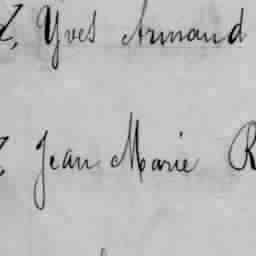 Yves Armand
Jean Marie